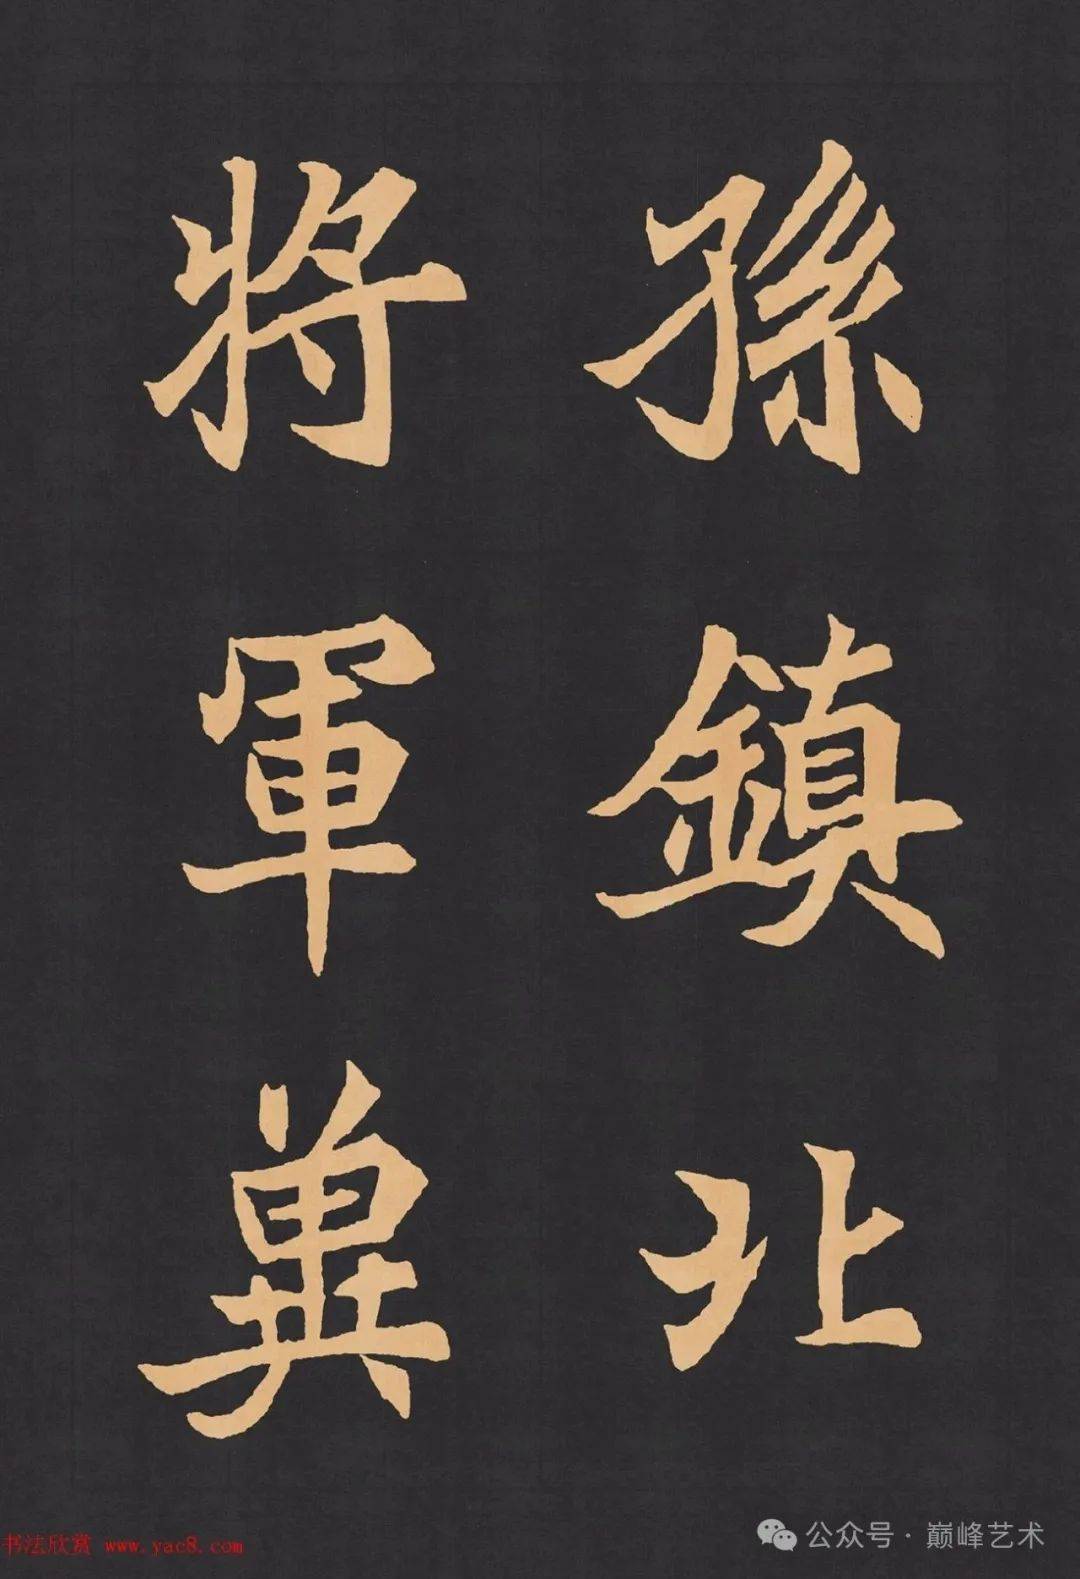 孫鎮北
將軍冀
书法欣赏 www.yac8.com
公众号·巅峰艺术